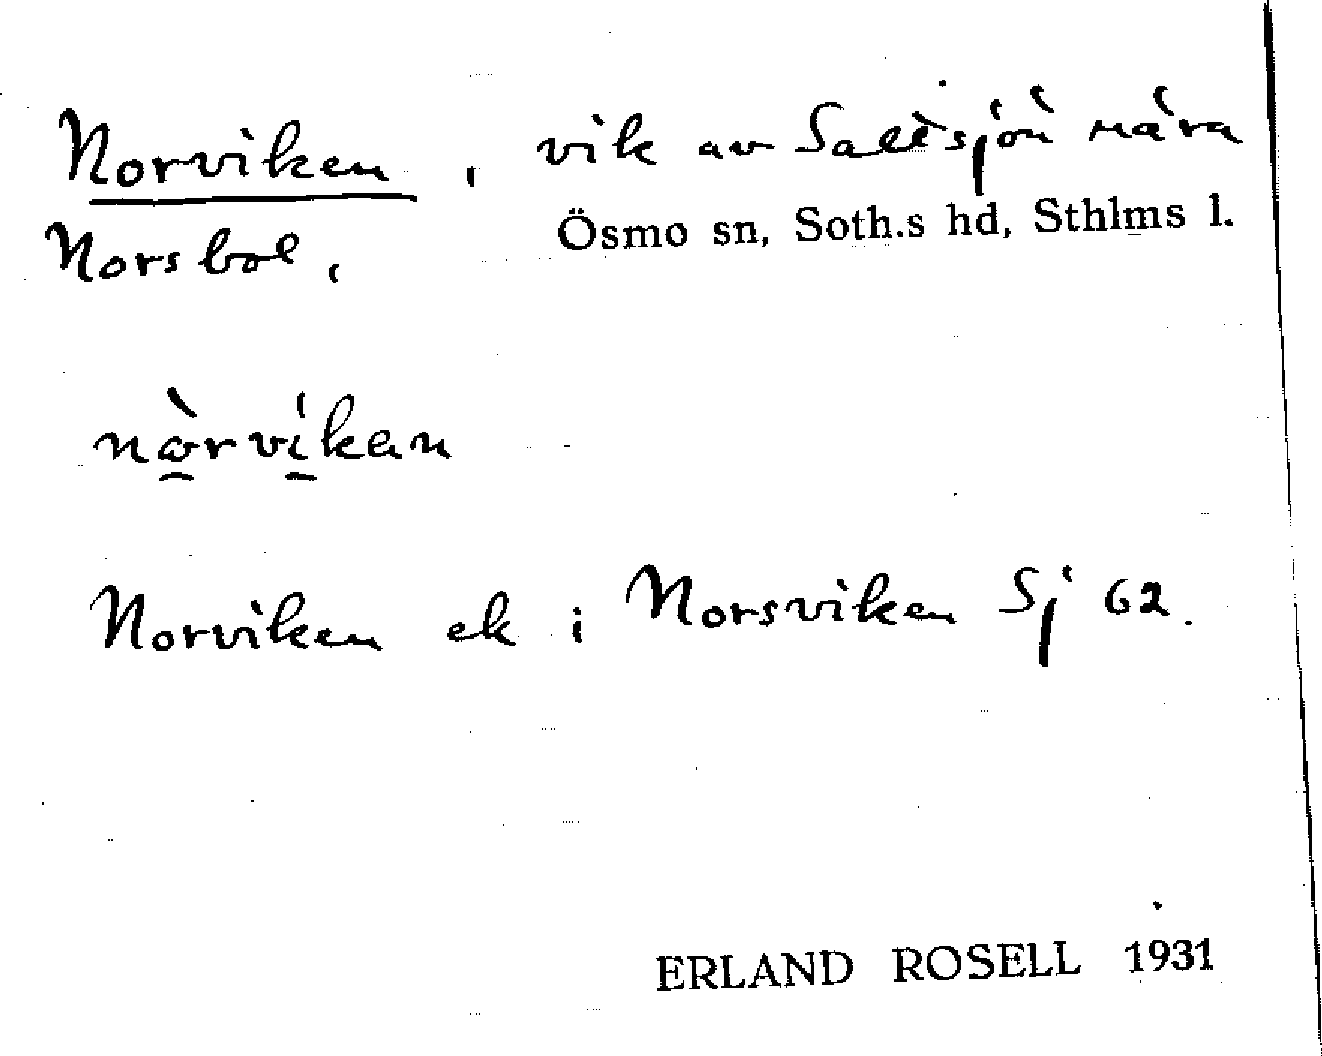 Norviken, vik av Saltsjön nära
Ösmo sn, Soth.s hd, Sthlms l.
Norsbol,
nòrvíkan
Norviken ek i Norsviken Sj 62.
ERLAND ROSELL 1931